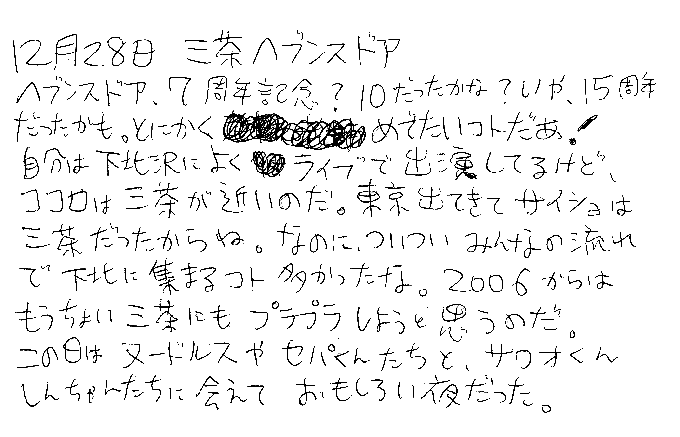 12月28日 三茶ヘブンスドア
ヘブンスドア、7周年記念?10だったかな?いや、15周年
だったかも。とにかく めでたいコトだぁ!
自分は下北沢によく ライブで出演してるけど、
ココロは三茶が近いのだ。東京出てきてサイショは
三茶だったからね。なのに、ついついみんなの流れ
で下北に集まるコト多かったな。2006からは
もうちょい三茶にもプラプラしようと思うのだ。
この日はヌードルスやセパくんたちと、サワオくん
しんちゃんたちに会えておもしろい夜だった。